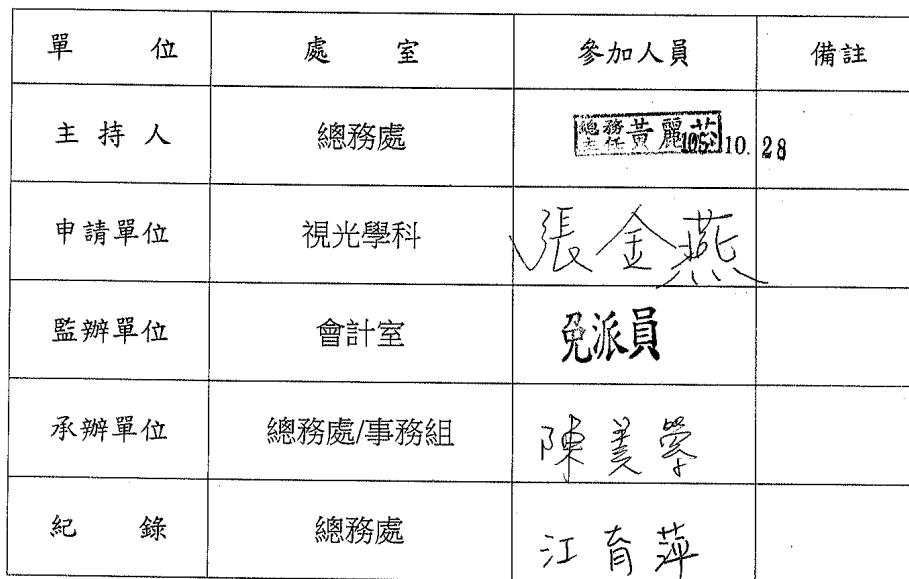 單 位 處 室 參加人員 備註
主 持 人 總務處 總務主任 黃麗 105. 10. 28
申請單位 視光學科 張金燕
監辦單位 會計室 免派員
承辦單位 總務處/事務組 陳美
紀 錄 總務處 江育萍